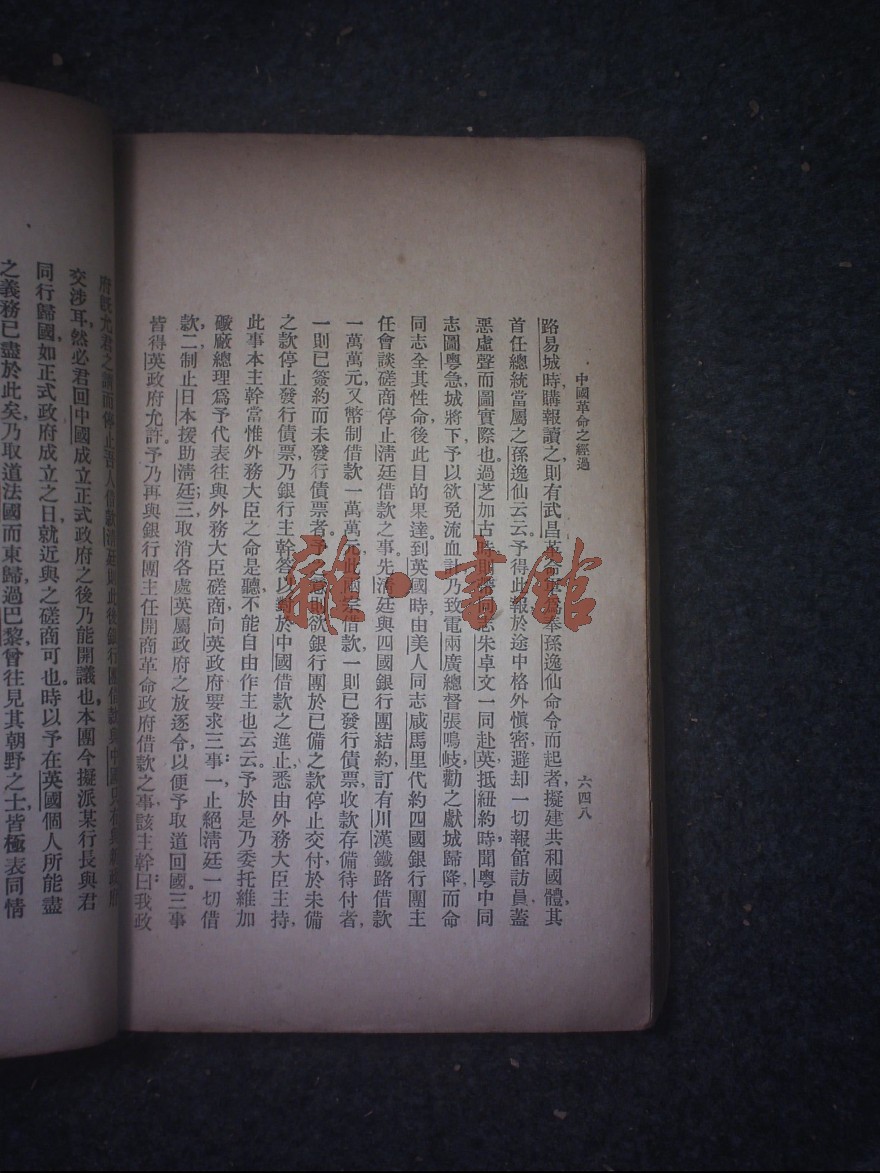 中國革命之經過
六四八
路易城時，購報讀之，則有武昌革命軍爲奉孫逸仙命令而起者，擬建共和國體，其
首任總統當屬之孫逸仙云云。予得此報，於途中格外愼密，避却一切報館訪員，蓋
惡虛聲而圖實際也。過芝加古時，則帶同志朱卓文一同赴英。抵紐約時，聞粵中同
志圖粵急，城將下，予以欲免流血計，乃致電兩廣總督張鳴岐，勸之獻城歸降，而命
同志全其性命，後此目的果達。到英國時，由美人同志咸馬里代約四國銀行團主
任會談，磋商停止淸廷借款之事。先淸廷與四國銀行團結約，訂有川漢鐵路借款
一萬萬元，又幣制借款一萬萬元。此兩宗借款，一則已發行債票，收款存備待付者，
一則已簽約而未發行債票者。予之意則欲銀行團於已備之款停止交付，於未備
之款停止發行債票。乃銀行主幹答以對於中國借款之進止，悉由外務大臣主持，
此事本主幹當惟外務大臣之命是聽，不能自由作主也云云。予於是乃委托維加
礮廠總理爲予代表，往與外務大臣磋商，向英政府要求三事：一、止絕淸廷一切借
款；二、制止日本援助淸廷；三、取消各處英屬政府之放逐令，以便予取道回國。三事
皆得英政府允許。予乃再與銀行團主任開商革命政府借款之事，該主幹曰：我政
府旣允君之請而停止吾人借款淸廷，則此後銀行團借款與中國，
交涉耳。然必君回中國成立正式政府之後，乃能開議也。本團今擬派某行長與君
同行歸國，如正式政府成立之日，就近與之磋商可也。時以予在英國個人所能盡
之義務已盡於此矣，乃取道法國而東歸。過巴黎，曾往見其朝野之士，皆極表同情
雜·書館